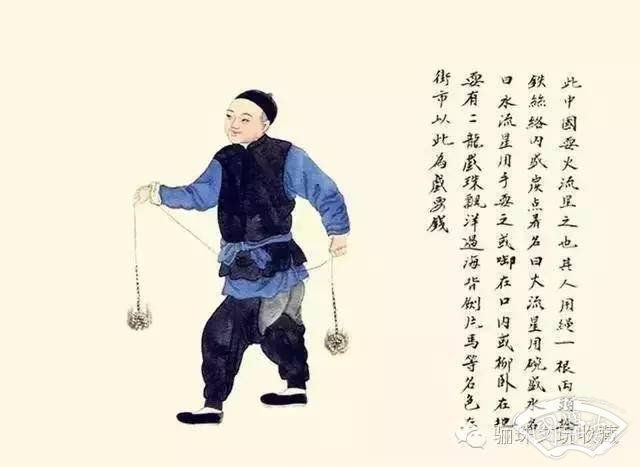 此中國耍火流星之也其人用繩一根兩頭拴
鉄絲絡内盛炭点弄名曰火流星用碗盛水名
曰水流星用手耍之或啣在口内或柳卧在地
耍有二龍戲珠觀洋過海背劍片馬等名色在
街市以此為戲耍錢
骊珠书院收藏